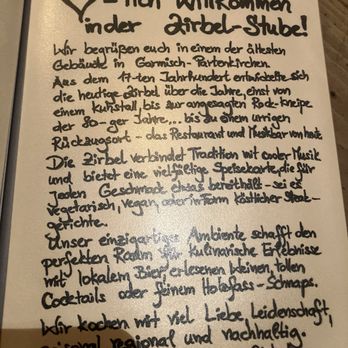 -lich Willkommen
in der Zirbel-Stube!
Wir begrüßen euch in einem der ältesten
Gebäude in Garmisch-Partenkirchen.
Aus dem 17-ten Jahrhundert entwickelte sich
die heutige Zirbel über die Jahre, einst von
einem Kuhstall, bis zur angesagten Rock-kneipe
der 80-ger Jahre,... bis zu einem urigen
Rückzugsort - das Restaurant und Musikbar von heute.
Die Zirbel verbindet Tradition mit cooler Musik
und bietet eine vielfältige Speisekarte, die für
jeden Geschmack etwas bereithält - sei es
vegetarisch, vegan, oder in Form köstlicher Steak-
gerichte.
Unser einzigartiges Ambiente schafft den
perfekten Raum für kulinarische Erlebnisse
mit lokalem Bier, erlesenen Weinen, tollen
Cocktails oder feinem Holzfass-Schnaps.
Wir kochen mit viel Liebe, Leidenschaft,
regional und nachhaltig.